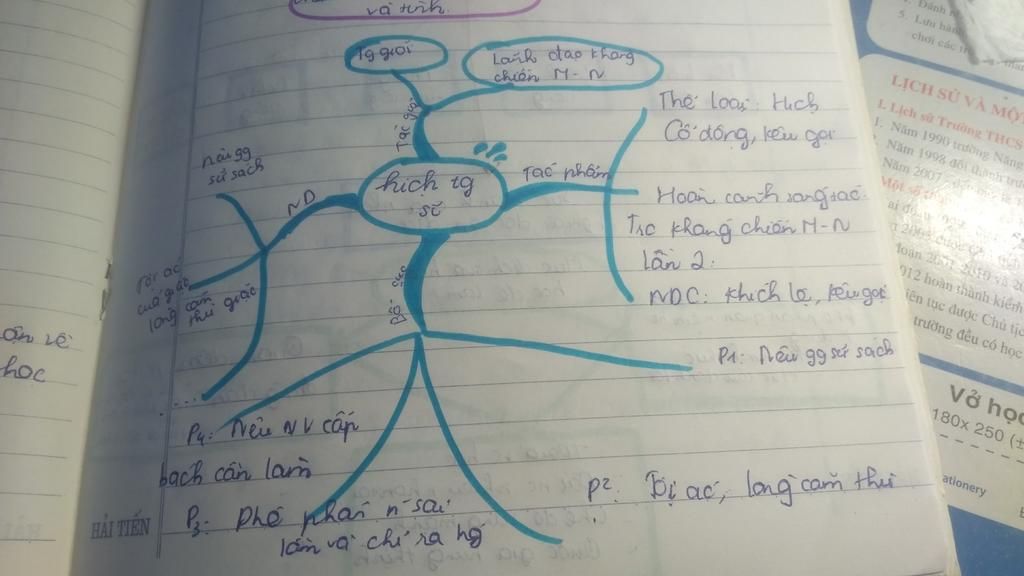 và tình.
Tg giới
Lãnh đạo kháng
chiến M-N
Tác giả
Thể loại: Hịch
Cổ động, kêu gọi
hịch tg
sĩ
Tác phẩm
Hoàn cảnh sang tác:
Trc kháng chiến M-N
lần 2:
NDC: khích lệ, kêu gọi
ND
nêu gg
sử sách
Tội ác
của giặc
lòng căm
thù giặc
....
Bố cục
P1: Nêu gg sử sách
P2: Tội ác, lòng căm thù
P3: Phê phán n~ sai
lầm và chỉ ra hg
P4: Nêu NV cấp
bách cần làm
ôn về
học
HẢI TIẾN
5. Lưu hà
chơi các t
LỊCH SỬ VÀ MỘ
1. Lịch sử Trường THCS
1. Năm 1990 trường Năng
Năm 1998 đổi thành trư
Năm 2007
Một số
012 hoàn thành kiểm
iên tục được Chủ tịc
trường đều có học
Vở học
180x 250 (±
ationery